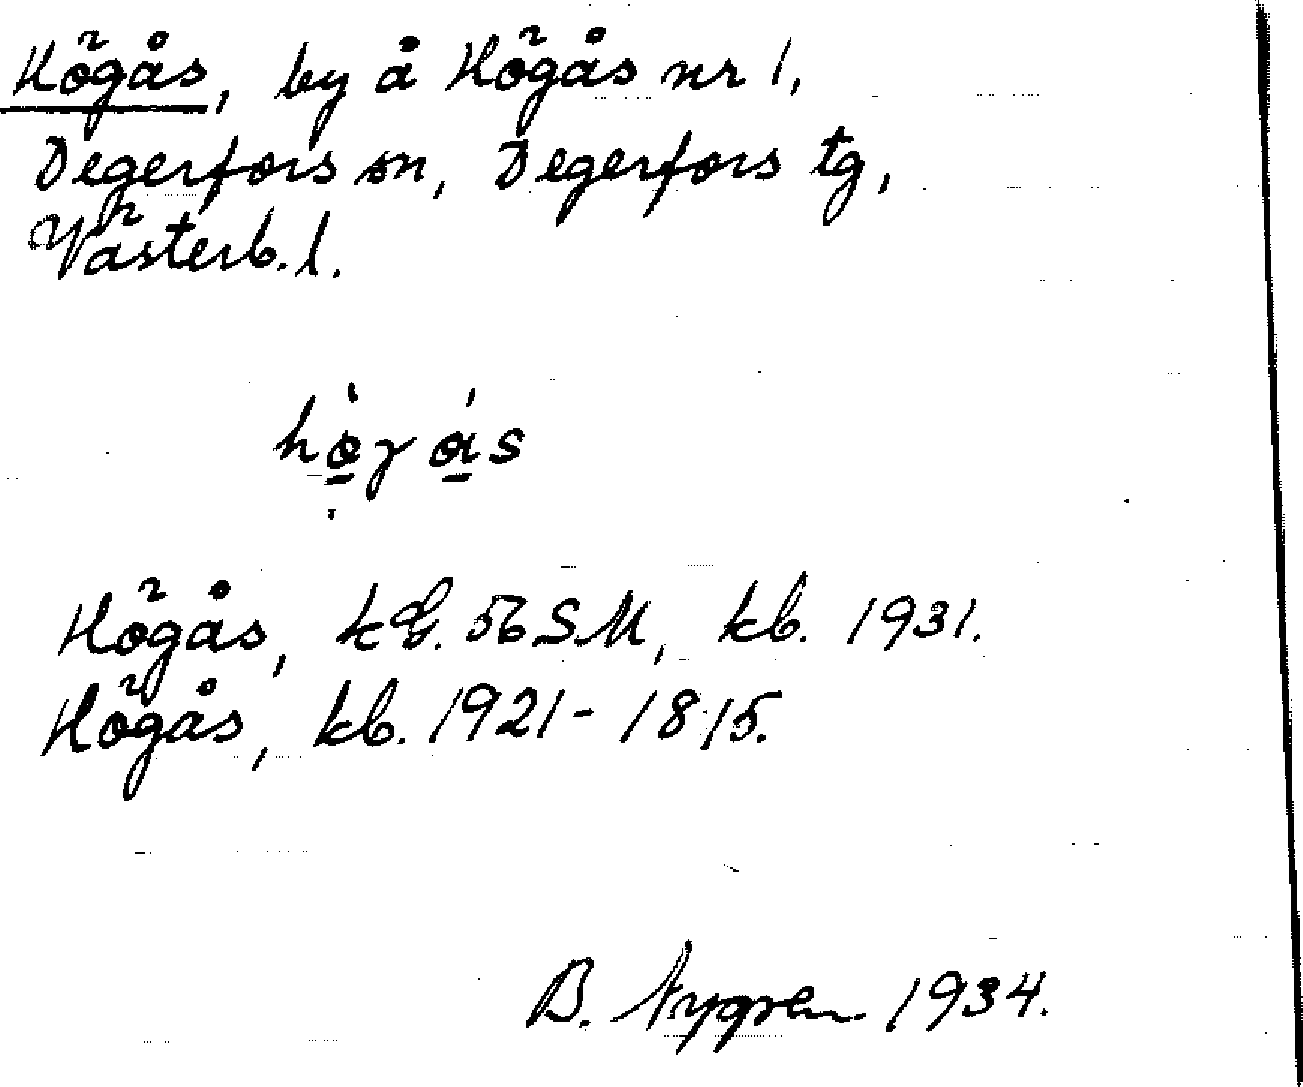 Högås, by å Högås nr 1,
Degerfors sn, Degerfors tg,
Västerb. l.
Högås, kG. 56 SM, kb. 1931.
Högås, kb. 1921 - 1815.
B. Nygren 1934.